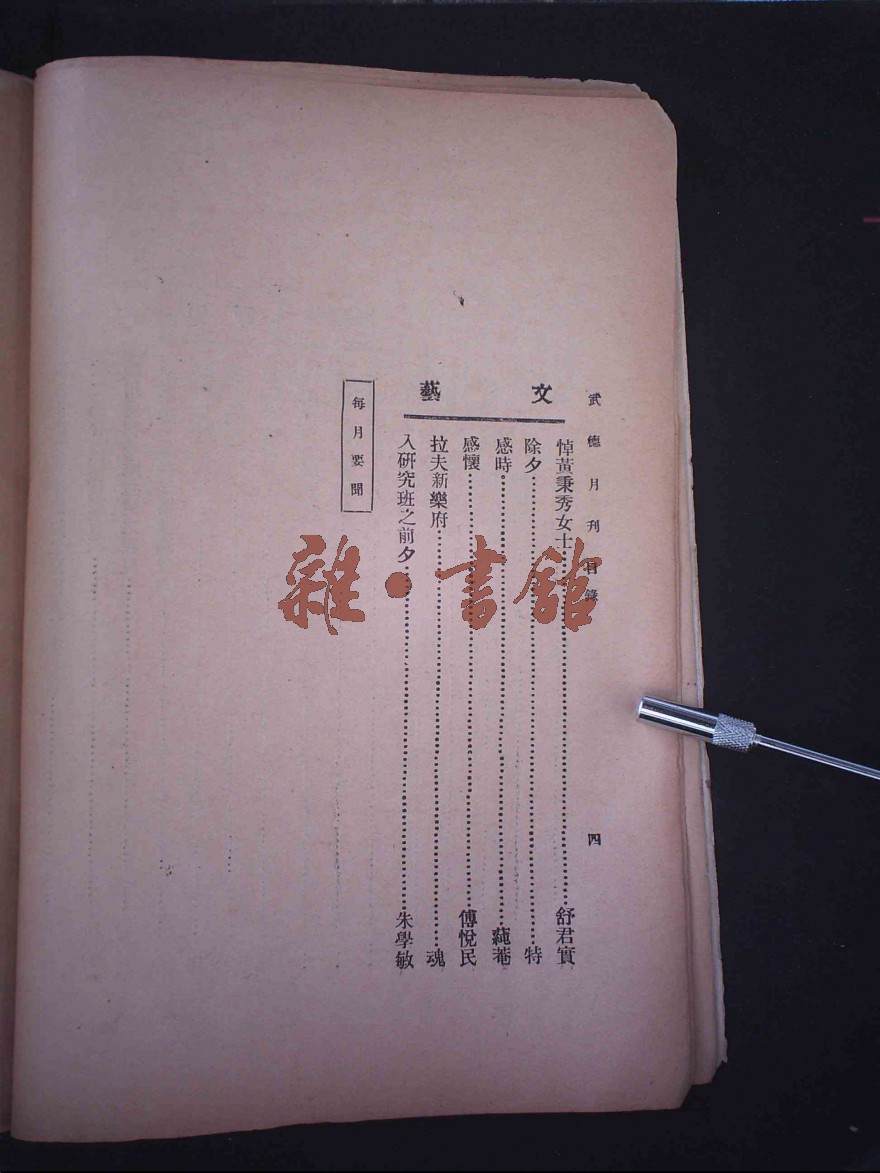 武德月刊目錄 四
文藝
悼黃秉秀女士……舒君實
除夕……特
感時……蒓菴
感懷……傅悅民
拉夫新樂府……魂
入研究班之前夕……朱學敏
每月要聞
雜·書館